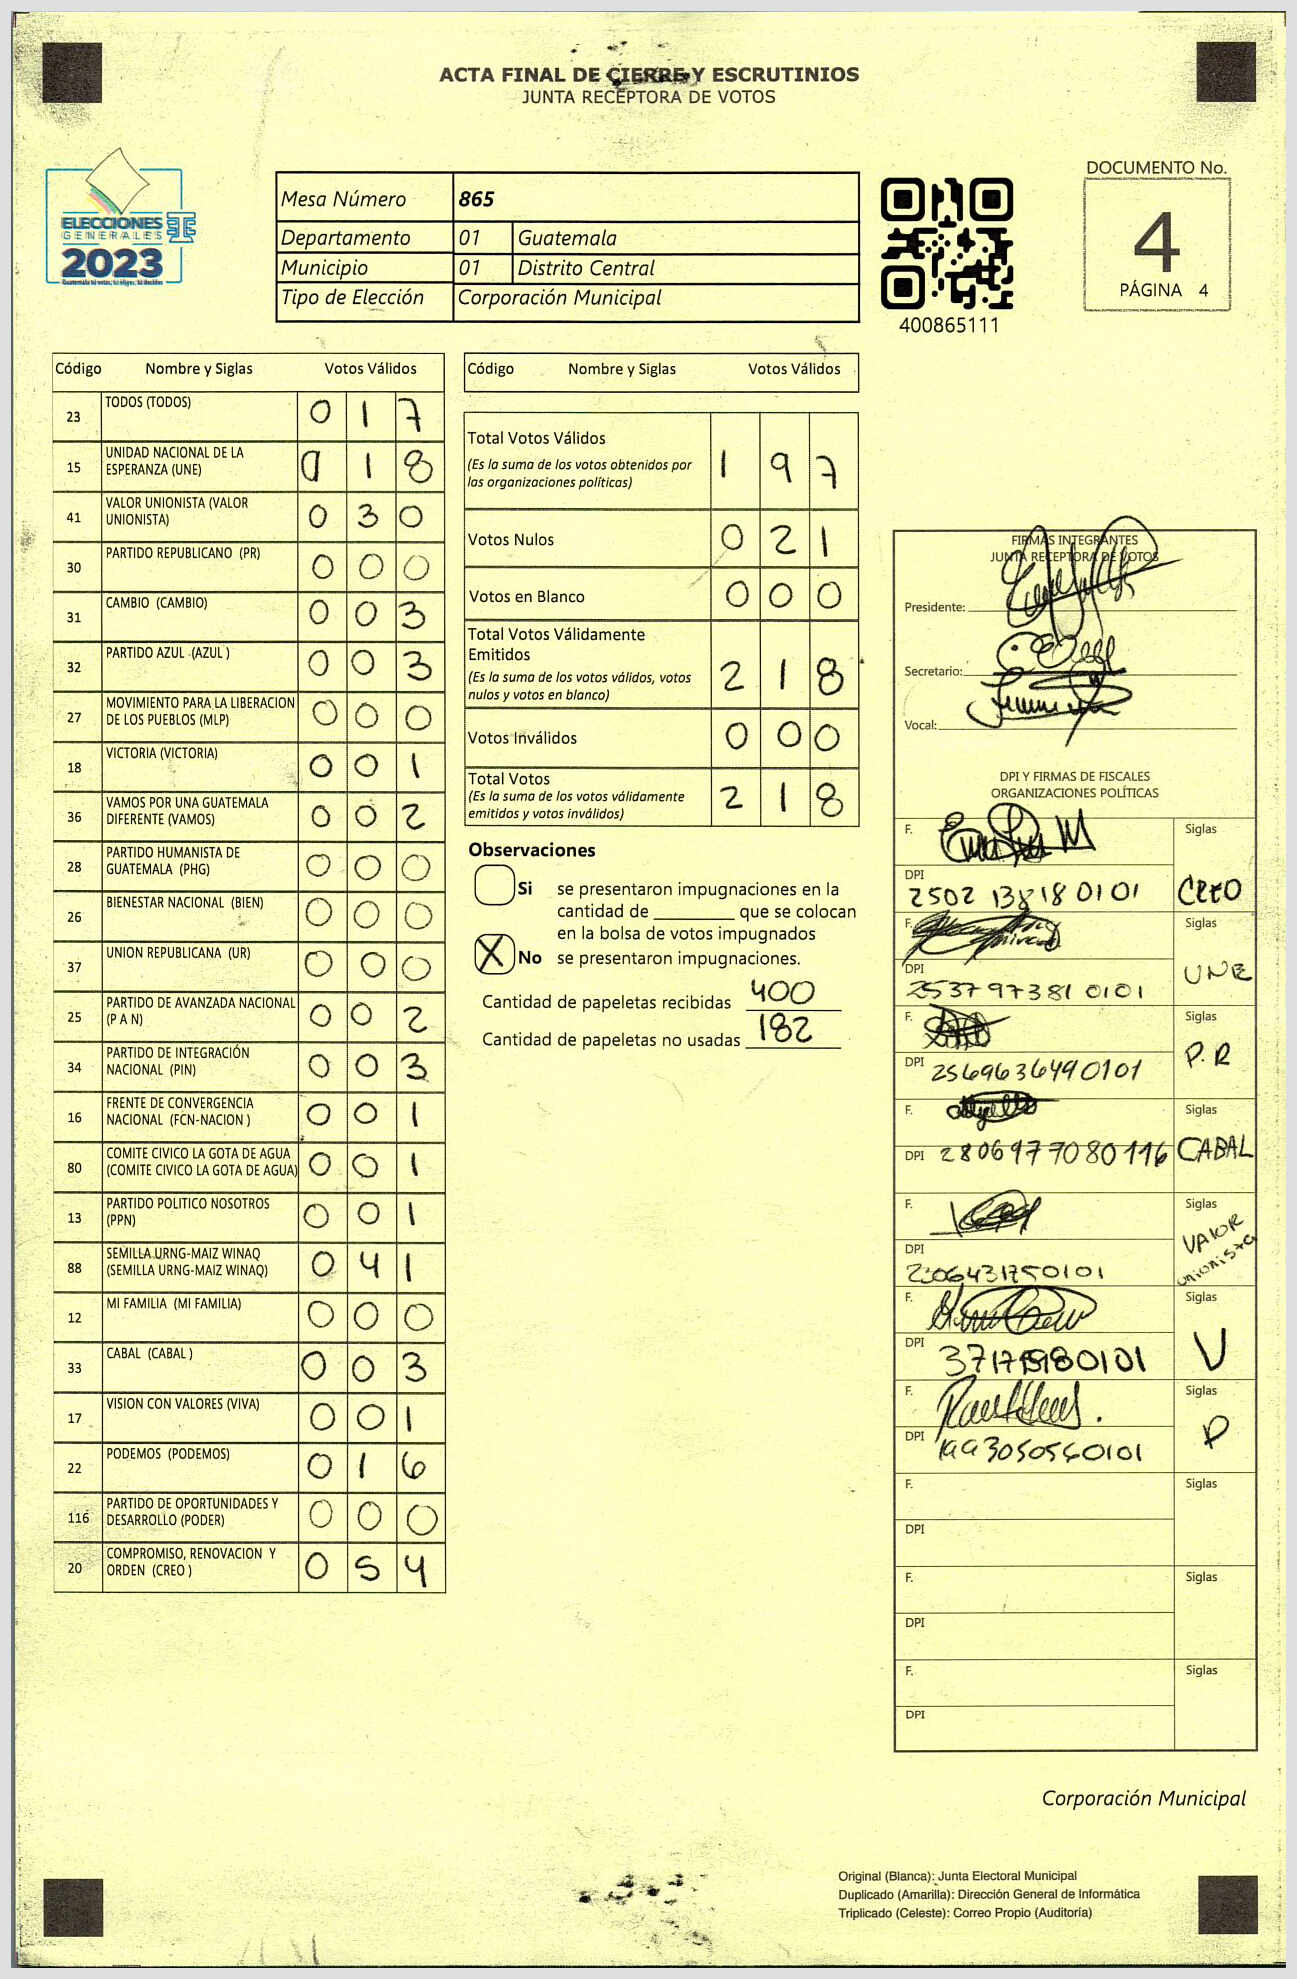 ACTA FINAL DE CIERRE Y ESCRUTINIOS
JUNTA RECEPTORA DE VOTOS
ELECCIONES
GENERALES
2023
Guatemala tú votas, tú eliges, tú decides
Mesa Número 865
Departamento 01 Guatemala
Municipio 01 Distrito Central
Tipo de Elección Corporación Municipal
400865111
DOCUMENTO No.
4
PÁGINA 4
Código Nombre y Siglas Votos Válidos
23 TODOS (TODOS) 0 1 7
15 UNIDAD NACIONAL DE LA ESPERANZA (UNE) 0 1 8
41 VALOR UNIONISTA (VALOR UNIONISTA) 0 3 0
30 PARTIDO REPUBLICANO (PR) 0 0 0
31 CAMBIO (CAMBIO) 0 0 3
32 PARTIDO AZUL (AZUL ) 0 0 3
27 MOVIMIENTO PARA LA LIBERACION DE LOS PUEBLOS (MLP) 0 0 0
18 VICTORIA (VICTORIA) 0 0 1
36 VAMOS POR UNA GUATEMALA DIFERENTE (VAMOS) 0 0 2
28 PARTIDO HUMANISTA DE GUATEMALA (PHG) 0 0 0
26 BIENESTAR NACIONAL (BIEN) 0 0 0
37 UNION REPUBLICANA (UR) 0 0 0
25 PARTIDO DE AVANZADA NACIONAL (P A N) 0 0 2
34 PARTIDO DE INTEGRACIÓN NACIONAL (PIN) 0 0 3
16 FRENTE DE CONVERGENCIA NACIONAL (FCN-NACION ) 0 0 1
80 COMITE CIVICO LA GOTA DE AGUA (COMITE CIVICO LA GOTA DE AGUA) 0 0 1
13 PARTIDO POLITICO NOSOTROS (PPN) 0 0 1
88 SEMILLA URNG-MAIZ WINAQ (SEMILLA URNG-MAIZ WINAQ) 0 4 1
12 MI FAMILIA (MI FAMILIA) 0 0 0
33 CABAL (CABAL ) 0 0 3
17 VISION CON VALORES (VIVA) 0 0 1
22 PODEMOS (PODEMOS) 0 1 6
116 PARTIDO DE OPORTUNIDADES Y DESARROLLO (PODER) 0 0 0
20 COMPROMISO, RENOVACION Y ORDEN (CREO ) 0 5 4
Código Nombre y Siglas Votos Válidos
Total Votos Válidos 1 9 7
(Es la suma de los votos obtenidos por
las organizaciones políticas)
Votos Nulos 0 2 1
Votos en Blanco 0 0 0
Total Votos Válidamente
Emitidos 2 1 8
(Es la suma de los votos válidos, votos
nulos y votos en blanco)
Votos Inválidos 0 0 0
Total Votos 2 1 8
(Es la suma de los votos válidamente
emitidos y votos inválidos)
Observaciones
Si se presentaron impugnaciones en la
cantidad de ________ que se colocan
en la bolsa de votos impugnados
X No se presentaron impugnaciones.
Cantidad de papeletas recibidas 400
Cantidad de papeletas no usadas 182
FIRMAS INTEGRANTES
JUNTA RECEPTORA DE VOTOS
Presidente:
Secretario:
Vocal:
DPI Y FIRMAS DE FISCALES
ORGANIZACIONES POLÍTICAS
F. Siglas
DPI 2502 13818 0101 CREO
F. Siglas
DPI 2537973810101 UNE
F. Siglas
DPI 2569636490101 P.R
F. Siglas
DPI 2806977080116 CABAL
F. Siglas
DPI 2306431750101 VALOR unionista
F. Siglas
DPI V
F. Siglas
DPI P
F. Siglas
DPI
F. Siglas
DPI
F. Siglas
DPI
Corporación Municipal
Original (Blanca): Junta Electoral Municipal
Duplicado (Amarilla): Dirección General de Informática
Triplicado (Celeste): Correo Propio (Auditoría)